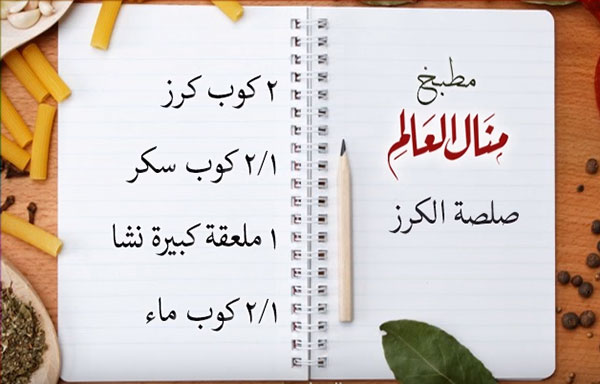 مطبخ
منال العالم
صلصة الكرز
٢ كوب كرز
٢/١ كوب سكر
١ ملعقة كبيرة نشا
٢/١ كوب ماء